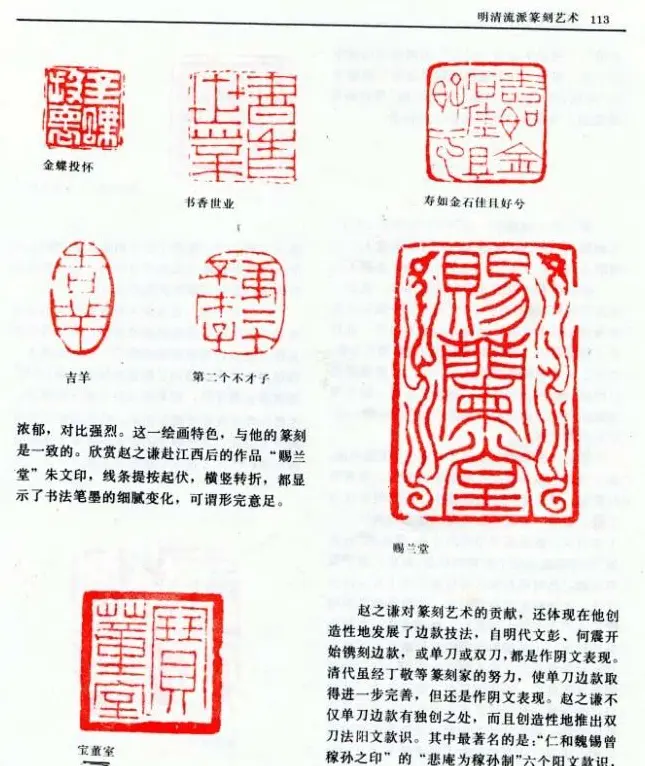 明清流派篆刻艺术 113
金蝶投怀
书香世业
寿如金石佳且好兮
吉羊
第二个不才子
浓郁，对比强烈。这一绘画特色，与他的篆刻
是一致的。欣赏赵之谦赴江西后的作品“赐兰
堂”朱文印，线条提按起伏，横竖转折，都显
示了书法笔墨的细腻变化，可谓形完意足。
赐兰堂
宝董室
赵之谦对篆刻艺术的贡献，还体现在他创
造性地发展了边款技法，自明代文彭、何震开
始镌刻边款，或单刀或双刀，都是作阴文表现。
清代虽经丁敬等篆刻家的努力，使单刀边款取
得进一步完善，但还是作阴文表现。赵之谦不
仅单刀边款有独创之处，而且创造性地推出双
刀法阳文款识。其中最著名的是：“仁和魏锡曾
稼孙之印”的“悲庵为稼孙制”六个阳文款识，